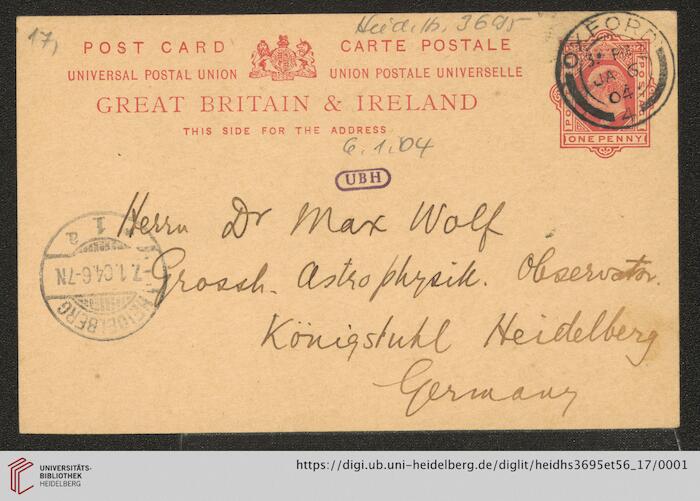 17,
Heidelb. 3695
POST CARD CARTE POSTALE
UNIVERSAL POSTAL UNION UNION POSTALE UNIVERSELLE
GREAT BRITAIN & IRELAND
THIS SIDE FOR THE ADDRESS
6.1.04
OXFORD
JA 6
04
4
ONE PENNY
UBH
Herrn Dr Max Wolf
Grossh. Astrophysik. Observator.
Königstuhl Heidelberg
Germany
1
a
7.1.04.6-7N
HEIDELBERG
UNIVERSITÄTS-
BIBLIOTHEK
HEIDELBERG
https://digi.ub.uni-heidelberg.de/diglit/heidhs3695et56_17/0001